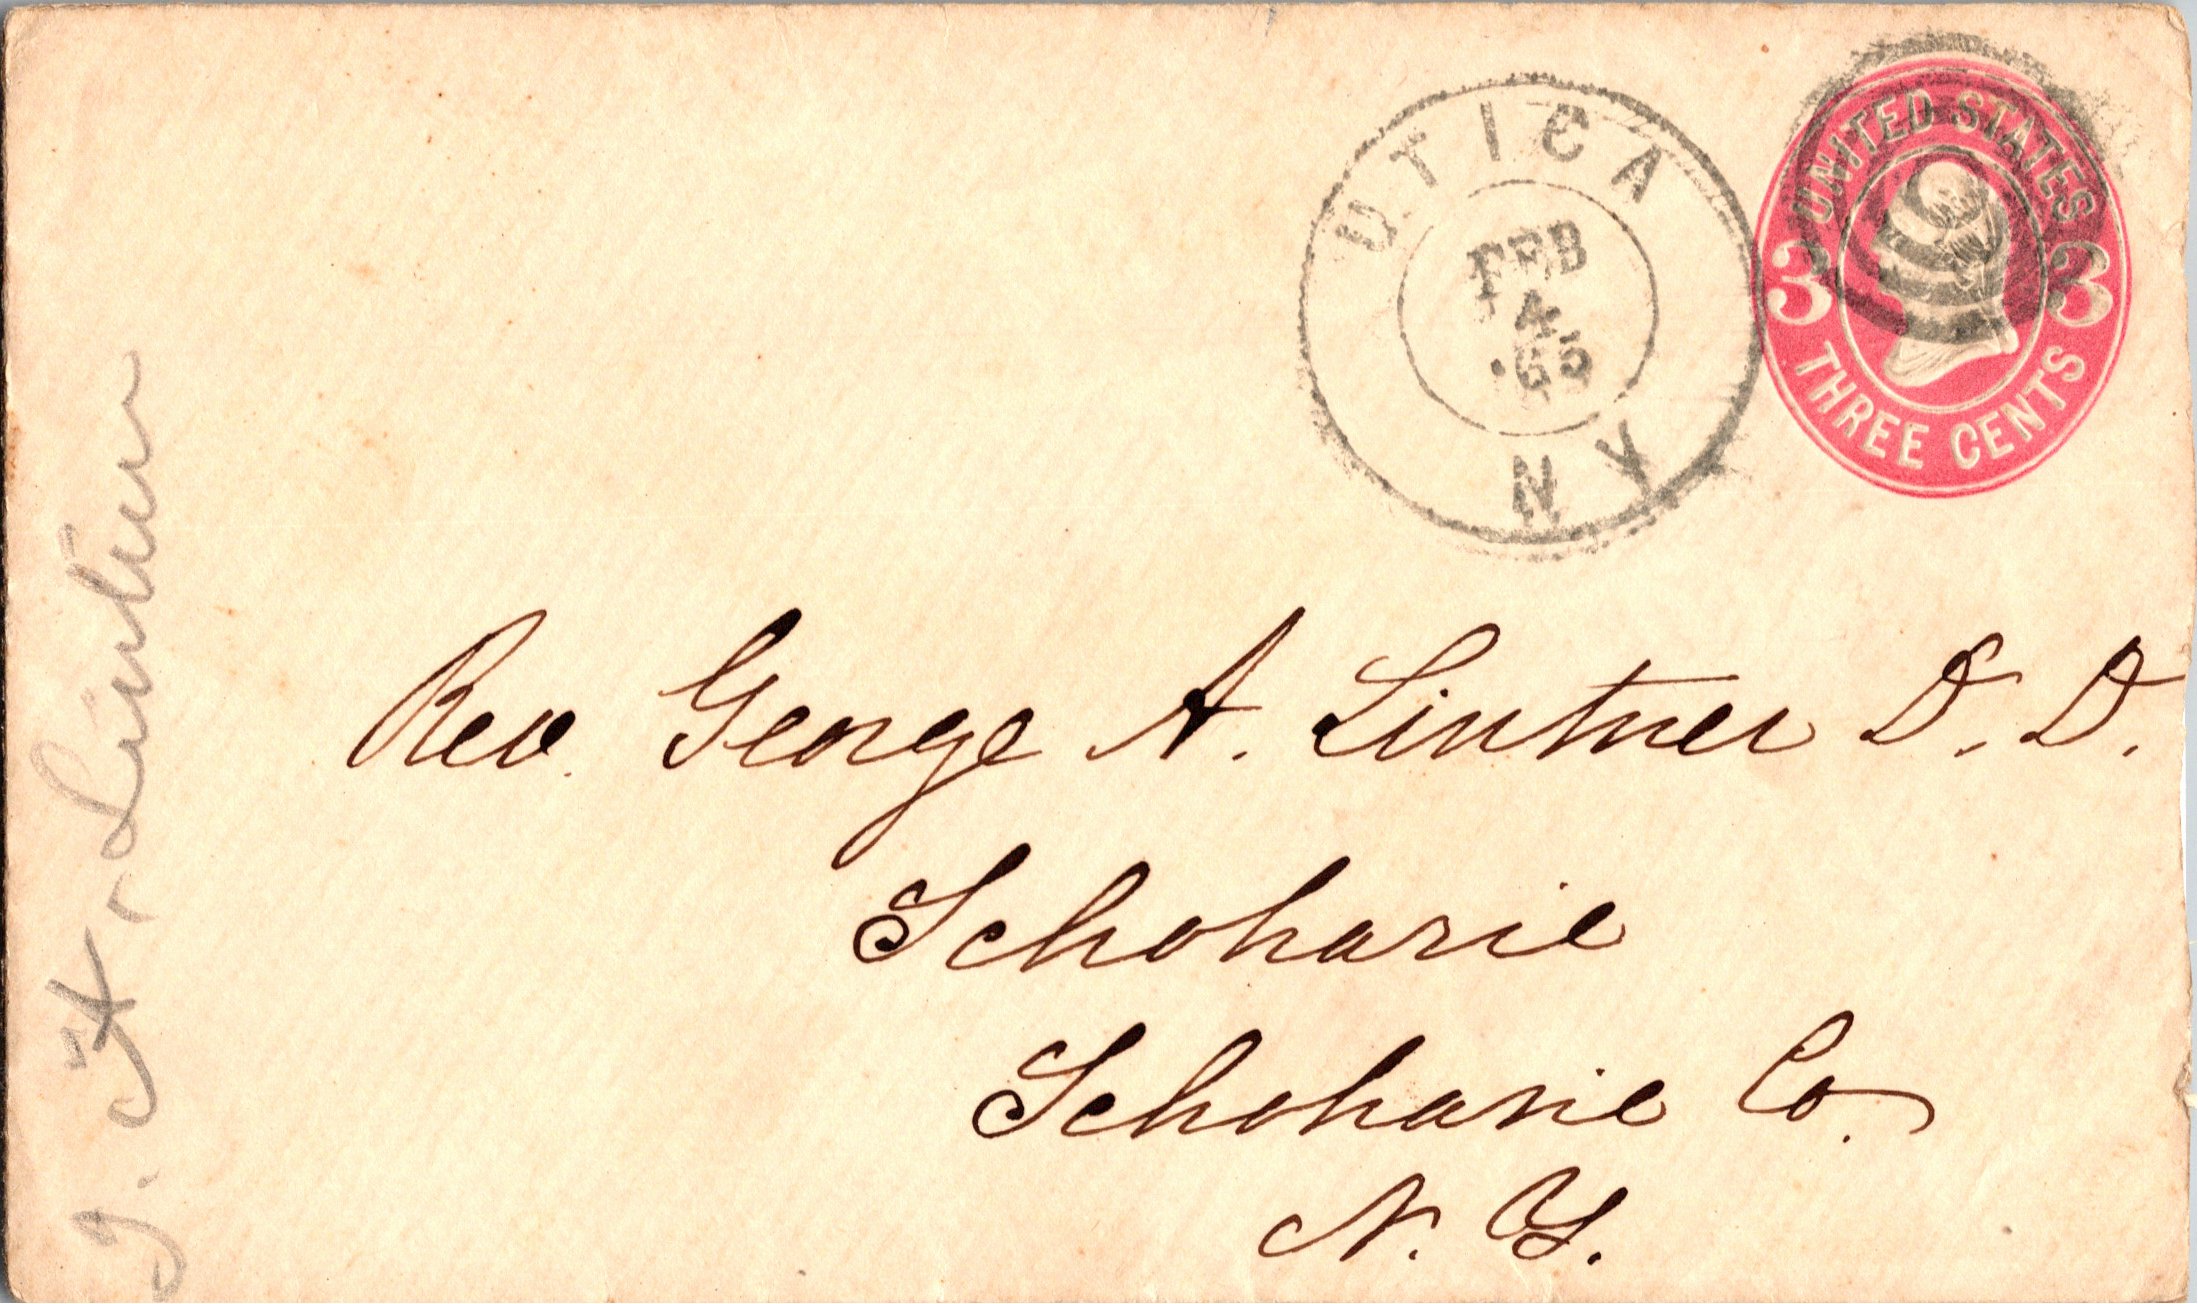 UTICA
FEB
4
'65
N Y
UNITED STATES
3 3
THREE CENTS
Rev. George A. Lintner D. D.
Schoharie
Schoharie Co.
N. Y.
Lintner